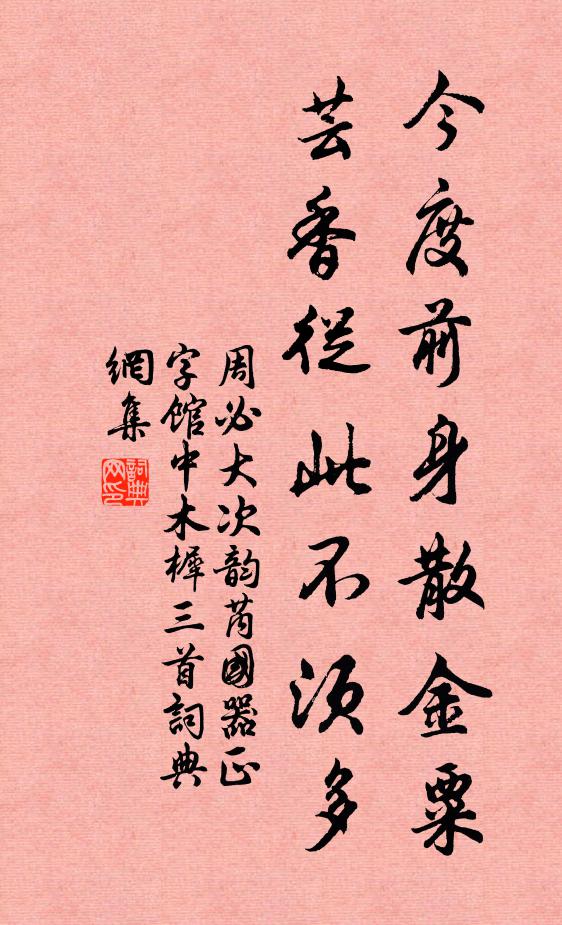 今度前身散金粟
芸香從此不須多
周必大次韵芮國器正
字館中木樨三首詞典
網集
詞典
网印